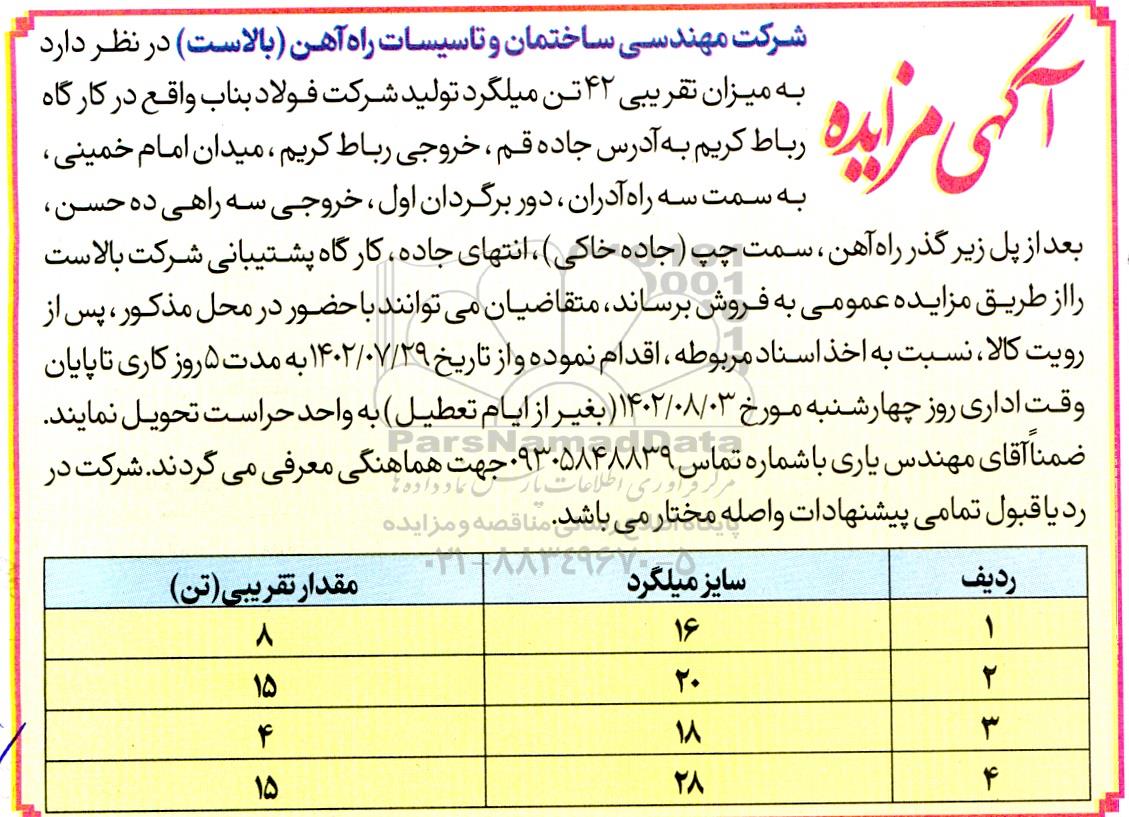 آگهی مزایده
شرکت مهندسی ساختمان و تاسیسات راه‌آهن (بالاست) در نظر دارد
به میزان تقریبی ۴۲ تن میلگرد تولید شرکت فولاد بناب واقع در کارگاه
رباط کریم به آدرس جاده قم ، خروجی رباط کریم ، میدان امام خمینی ،
به سمت سه راه آدران ، دور برگردان اول ، خروجی سه راهی ده حسن ،
بعد از پل زیر گذر راه‌آهن ، سمت چپ (جاده خاکی) ، انتهای جاده ، کارگاه پشتیبانی شرکت بالاست
را از طریق مزایده عمومی به فروش برساند، متقاضیان می توانند با حضور در محل مذکور ، پس از
رویت کالا ، نسبت به اخذ اسناد مربوطه ، اقدام نموده و از تاریخ ۱۴۰۲/۰۷/۲۹ به مدت ۵ روز کاری تا پایان
وقت اداری روز چهارشنبه مورخ ۱۴۰۲/۰۸/۰۳ (بغیر از ایام تعطیل) به واحد حراست تحویل نمایند.
ضمناً آقای مهندس یاری با شماره تماس ۰۹۳۰۵۸۴۸۸۳۹ جهت هماهنگی معرفی می گردند. شرکت در
رد یا قبول تمامی پیشنهادات واصله مختار می باشد.
ParsNamadData
مرکز فرآوری اطلاعات پارس نماد داده ها
پایگاه اطلاع رسانی مناقصه و مزایده
۰۲۱-۸۸۳۴۹۶۷۰-۵
ردیف سایز میلگرد مقدار تقریبی (تن)
۱ ۱۶ ۸
۲ ۲۰ ۱۵
۳ ۱۸ ۴
۴ ۲۸ ۱۵